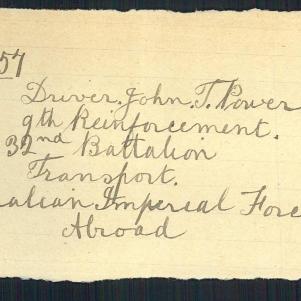 57
Driver. John. T. Power
9th Reinforcement.
32nd Battalion
Transport.
alian Imperial Forc
Abroad